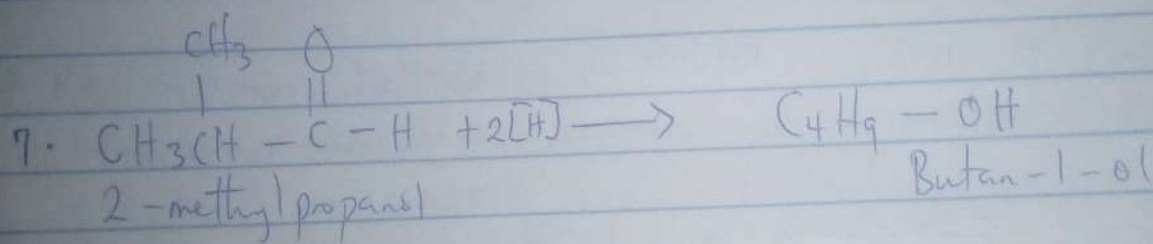 CH3 O
| ||
7. CH3CH - C - H + 2[H] ⟶ C4H9 - OH
2-methylpropanol Butan-1-ol